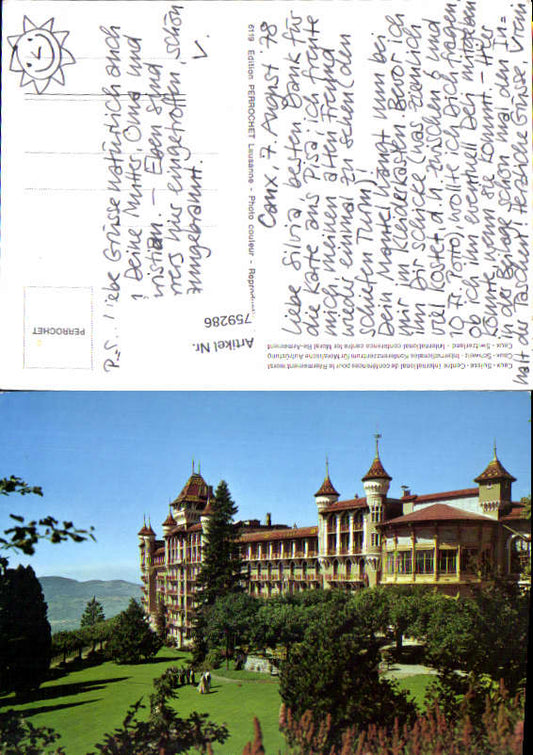 Caux, 7. August 78
Liebe Silvia, besten Dank für
die Karte aus Pisa; ich freute
mich, meinen alten Freund
wieder einmal zu sehen (den
schiefen Turm).
Dein Mantel hängt nun bei
mir im Kleiderkasten. Bevor ich
ihn Dir schicke (was ziemlich
viel kostet d.h. zwischen 6 und
10 Fr. Porto), wollte ich Dich fragen,
ob ich ihn eventuell Deiner mitgeben
könnte, wenn sie kommt. - Hier
in der Beilage schon mal den In=
halt der Taschen! Herzliche Grüsse, Vreni
P.S. Liebe Grüsse natürlich auch
Deine Mutter, Oma und
Kristian. - Eben sind
hier eingetroffen, schön
braungebrannt.
V.
6119 Edition PERROCHET Lausanne - Photo couleur - Reprod
PERROCHET
Artikel Nr.
759286
Caux - Suisse - Centre international de conférences pour le Réarmement moral
Caux - Schweiz - Internationales Konferenzzentrum für Moralische Aufrüstung
Caux - Switzerland - International conference centre for Moral Re-Armement